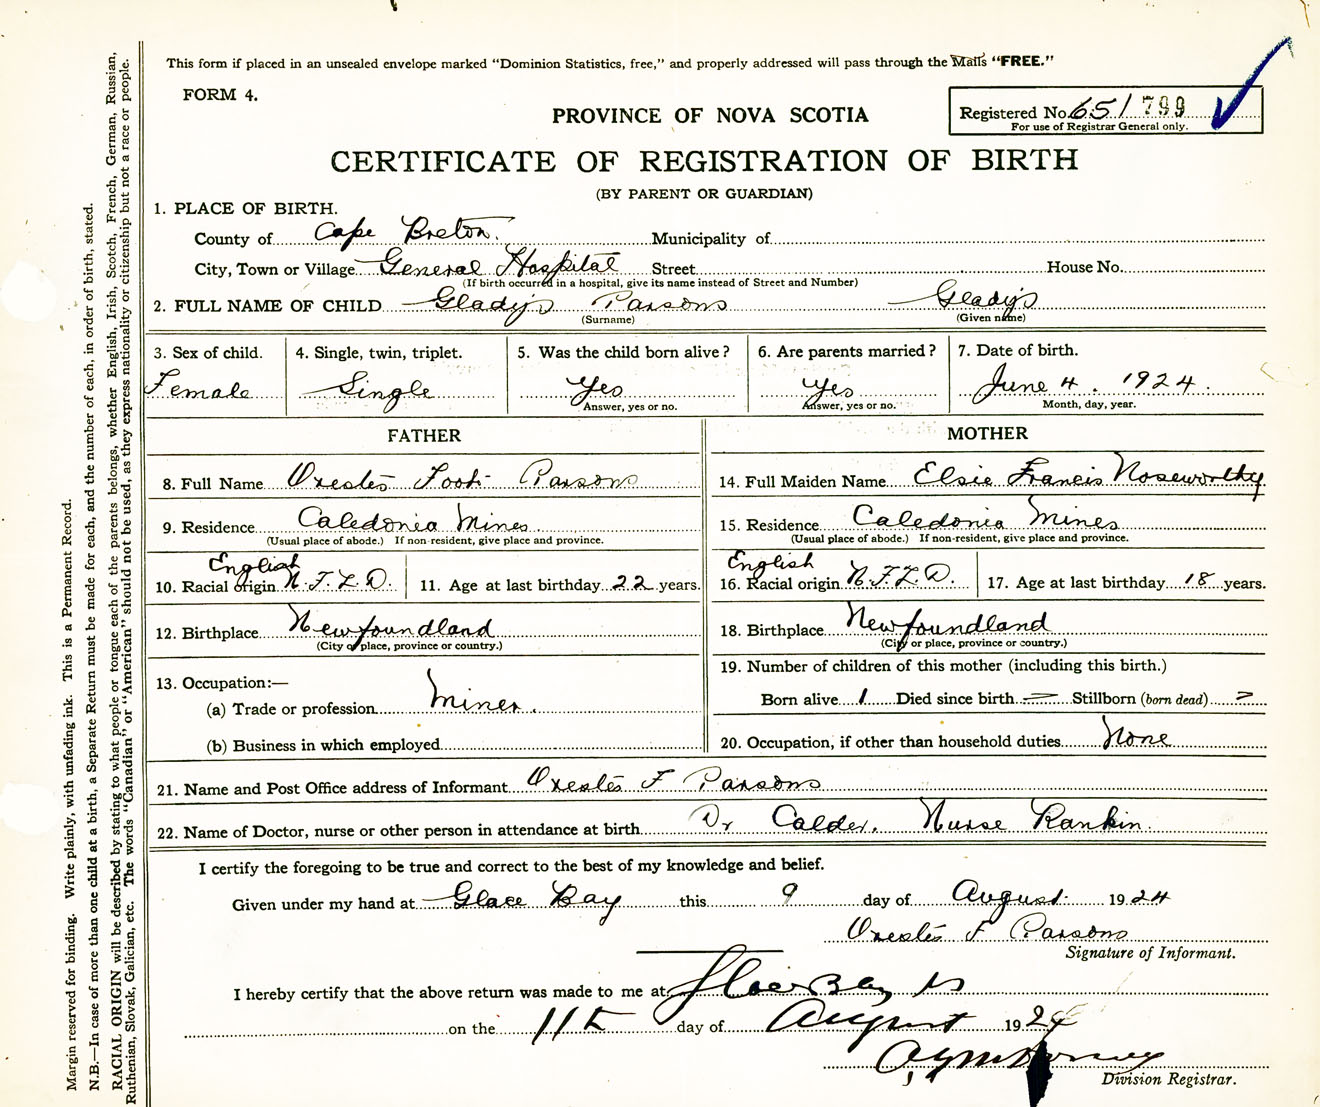 This form if placed in an unsealed envelope marked "Dominion Statistics, free," and properly addressed will pass through the Mails "FREE."
FORM 4.
PROVINCE OF NOVA SCOTIA
Registered No. 651 799
For use of Registrar General only.
CERTIFICATE OF REGISTRATION OF BIRTH
(BY PARENT OR GUARDIAN)
1. PLACE OF BIRTH.
County of Cape Breton. Municipality of
City, Town or Village General Hospital Street House No.
(If birth occurred in a hospital, give its name instead of Street and Number)
2. FULL NAME OF CHILD Gladys Parsons Gladys
(Surname) (Given name)
3. Sex of child. 4. Single, twin, triplet. 5. Was the child born alive? 6. Are parents married? 7. Date of birth.
Female Single Yes Yes June 4. 1924.
Answer, yes or no. Answer, yes or no. Month, day, year.
FATHER MOTHER
8. Full Name Orestes Foot Parsons 14. Full Maiden Name Elsie Francis Noseworthy
9. Residence Caledonia Mines 15. Residence Caledonia Mines
(Usual place of abode.) If non-resident, give place and province. (Usual place of abode.) If non-resident, give place and province.
English English
10. Racial origin N.F.L.D. 11. Age at last birthday 22 years. 16. Racial origin N.F.L.D. 17. Age at last birthday 18 years.
12. Birthplace Newfoundland 18. Birthplace Newfoundland
(City or place, province or country.) (City or place, province or country.)
13. Occupation:— 19. Number of children of this mother (including this birth.)
(a) Trade or profession Miner. Born alive 1 Died since birth Stillborn (born dead)
(b) Business in which employed 20. Occupation, if other than household duties None
21. Name and Post Office address of Informant Orestes F Parsons
22. Name of Doctor, nurse or other person in attendance at birth Dr Calder. Nurse Rankin.
I certify the foregoing to be true and correct to the best of my knowledge and belief.
Given under my hand at Glace Bay this 9 day of August 1924
Orestes F Parsons
Signature of Informant.
I hereby certify that the above return was made to me at Glace Bay NS
on the 11th day of August 1924
Division Registrar.
Margin reserved for binding. Write plainly, with unfading ink. This is a Permanent Record.
N.B.—In case of more than one child at a birth, a Separate Return must be made for each, and the number of each, in order of birth, stated.
RACIAL ORIGIN will be described by stating to what people or tongue each of the parents belongs, whether English, Irish, Scotch, French, German, Russian,
Ruthenian, Slovak, Galician, etc. The words "Canadian" or "American" should not be used, as they express nationality or citizenship but not a race or people.